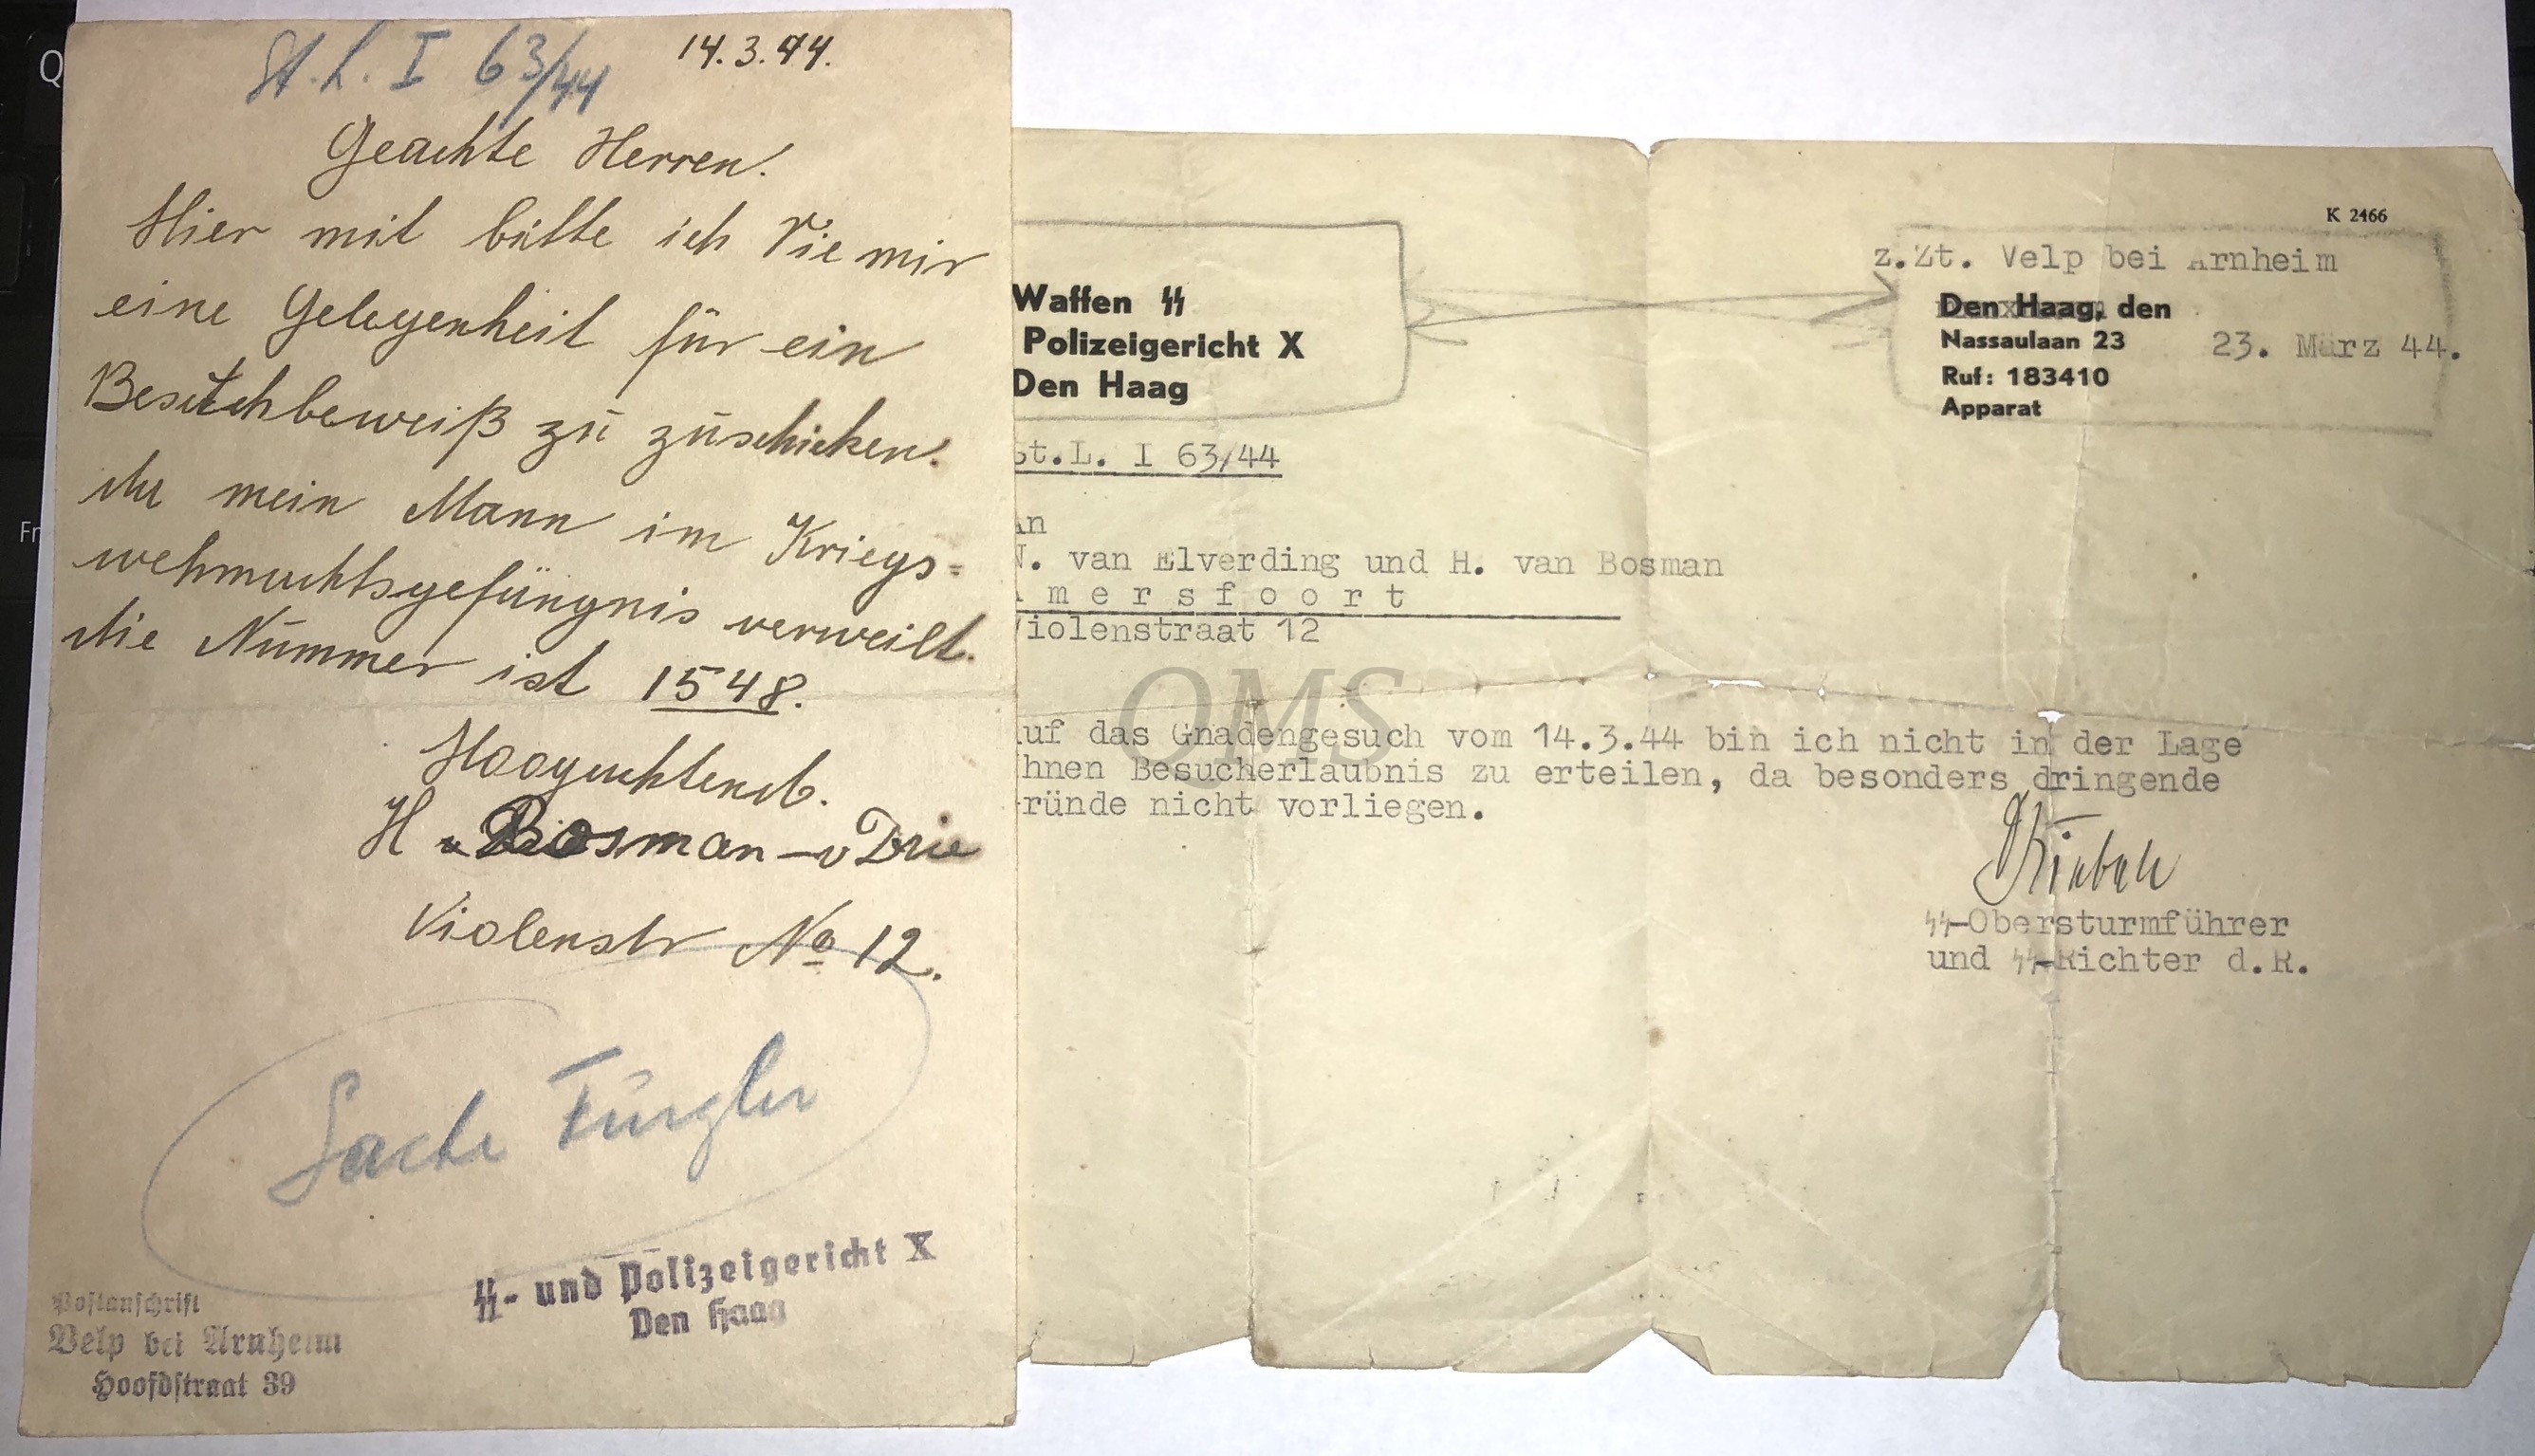 St. L. I 63/44
14.3.44.
Geachte Herren!
Hier mit bitte ich Sie mir
eine Gelegenheit für ein
Besuchbeweiß zu zuschicken.
da mein Mann im Kriegs=
wehrmachtsgefängnis verweilt.
die Nummer ist 1548.
Hoogachtend.
H v Bosman - v Drie
Violenstr No 12.
Sache Fürgler
Postanschrift
Velp bei Arnheim
Hoofdstraat 39
SS- und Polizeigericht X
Den Haag
K 2466
Waffen SS
Polizeigericht X
Den Haag
z.Zt. Velp bei Arnheim
Den Haag, den
Nassaulaan 23
23. März 44.
Ruf: 183410
Apparat
St.L. I 63/44
An
. van Elverding und H. van Bosman
mersfoort
Violenstraat 12
QMS
uf das Gnadengesuch vom 14.3.44 bin ich nicht in der Lage
hnen Besucherlaubnis zu erteilen, da besonders dringende
ründe nicht vorliegen.
SS-Obersturmführer
und SS-Richter d.R.
Q
Fr